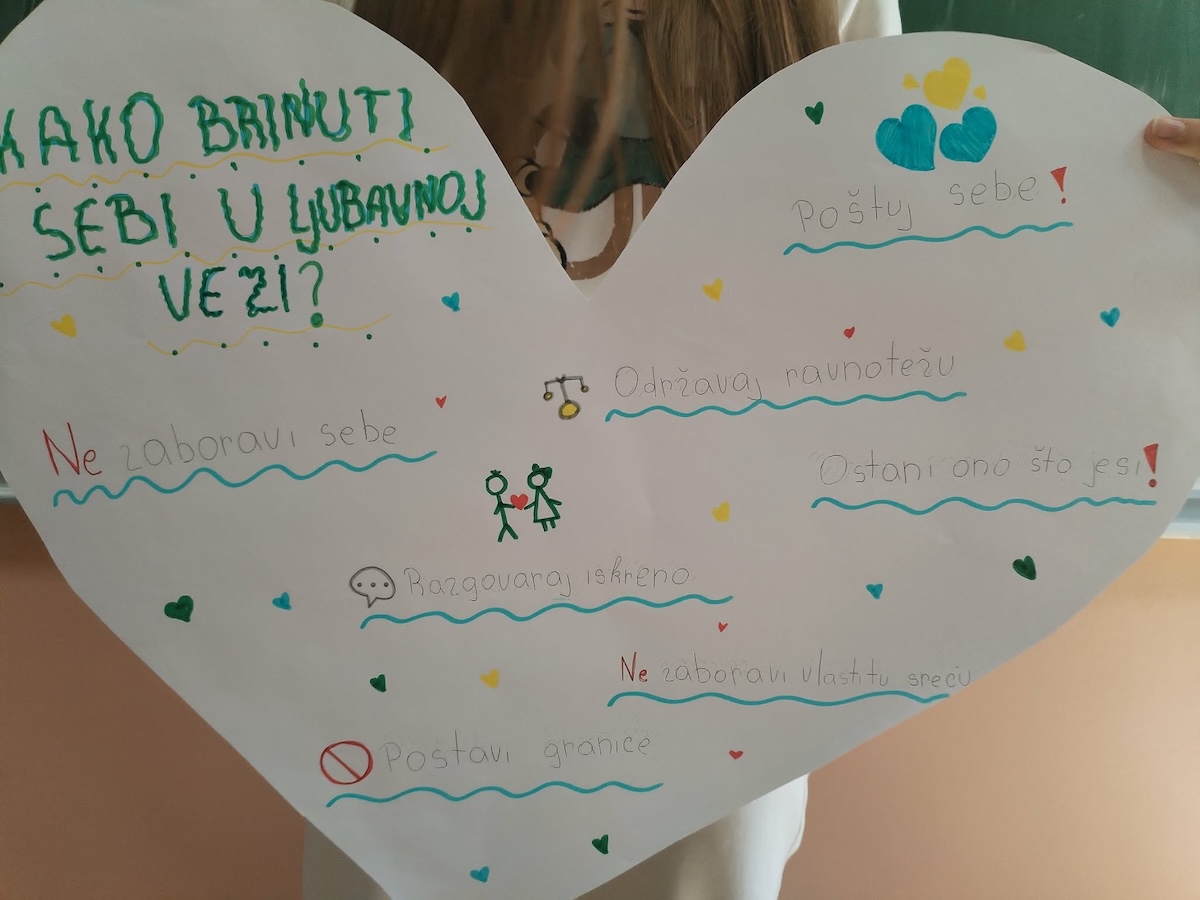 KAKO BRINUTI
SEBI U LJUBAVNOJ
VEZI?
Poštuj sebe!
Održavaj ravnotežu
Ne zaboravi sebe
Ostani ono što jesi!
Razgovaraj iskreno
Ne zaboravi vlastitu sreću
Postavi granice